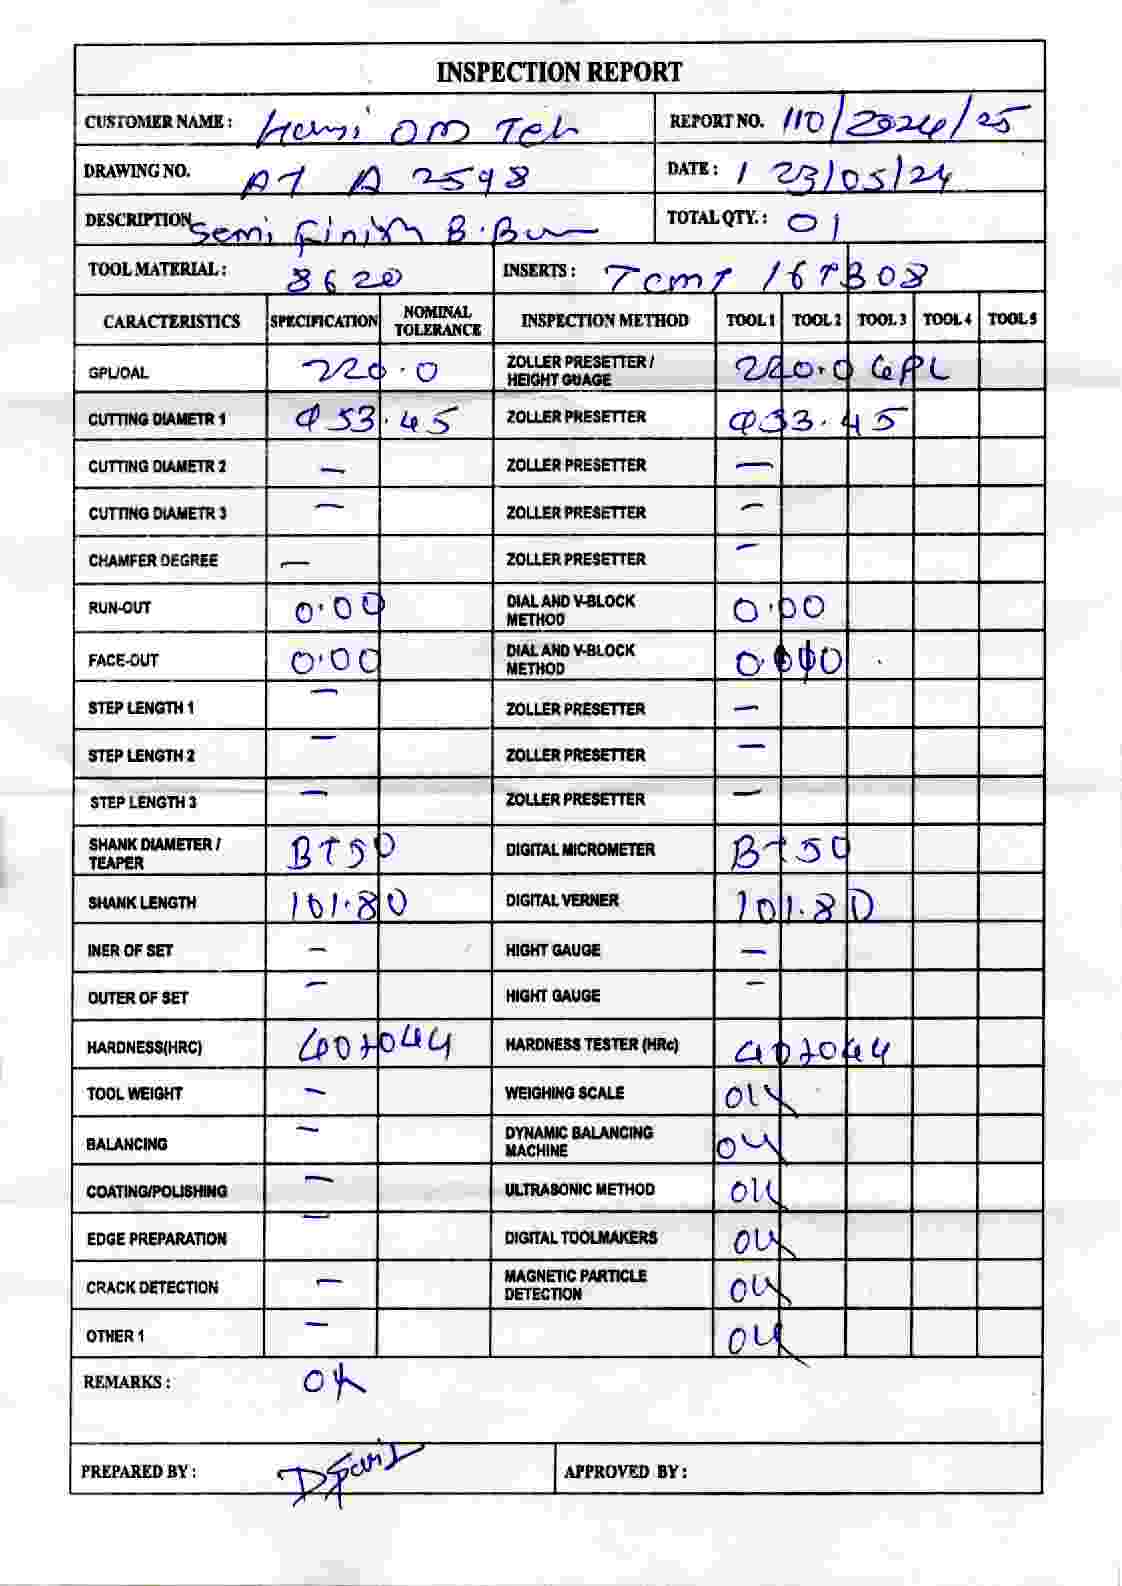 INSPECTION REPORT
CUSTOMER NAME : OM Teh
REPORT NO. 110/2024/25
DRAWING NO. AT A 2598
DATE : 23/05/24
DESCRIPTION Semi finish B.Bar
TOTAL QTY. : 01
TOOL MATERIAL : 8620
INSERTS : TCMT 16T308
CARACTERISTICS SPECIFICATION NOMINAL TOLERANCE INSPECTION METHOD TOOL 1 TOOL 2 TOOL 3 TOOL 4 TOOL 5
GPL/OAL 220.0 ZOLLER PRESETTER / HEIGHT GUAGE 220.0 GPL
CUTTING DIAMETR 1 φ53.45 ZOLLER PRESETTER φ53.45
CUTTING DIAMETR 2 — ZOLLER PRESETTER —
CUTTING DIAMETR 3 — ZOLLER PRESETTER —
CHAMFER DEGREE — ZOLLER PRESETTER —
RUN-OUT 0.00 DIAL AND V-BLOCK METHOD 0.00
FACE-OUT 0.00 DIAL AND V-BLOCK METHOD
STEP LENGTH 1 — ZOLLER PRESETTER —
STEP LENGTH 2 — ZOLLER PRESETTER —
STEP LENGTH 3 — ZOLLER PRESETTER —
SHANK DIAMETER / TEAPER BT50 DIGITAL MICROMETER BT50
SHANK LENGTH 101.80 DIGITAL VERNER 101.80
INER OF SET — HIGHT GAUGE —
OUTER OF SET — HIGHT GAUGE —
HARDNESS(HRC) 40to44 HARDNESS TESTER (HRc) 40to44
TOOL WEIGHT — WEIGHING SCALE OK
BALANCING — DYNAMIC BALANCING MACHINE OK
COATING/POLISHING — ULTRASONIC METHOD OK
EDGE PREPARATION — DIGITAL TOOLMAKERS OK
CRACK DETECTION — MAGNETIC PARTICLE DETECTION OK
OTHER 1 — OK
REMARKS : OK
PREPARED BY :
APPROVED BY :